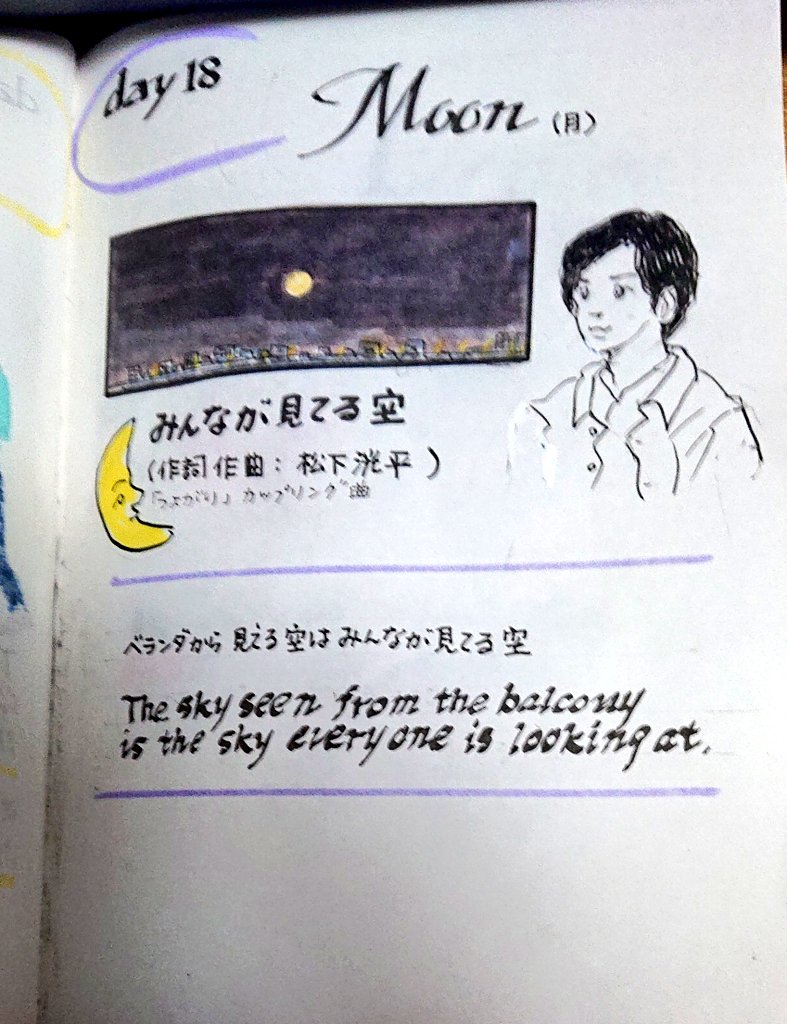 day 18
Moon (月)
みんなが見てる空
(作詞作曲: 松下洸平)
「つよがり」カップリング曲
ベランダから見える空はみんなが見てる空
The sky seen from the balcony
is the sky everyone is looking at.